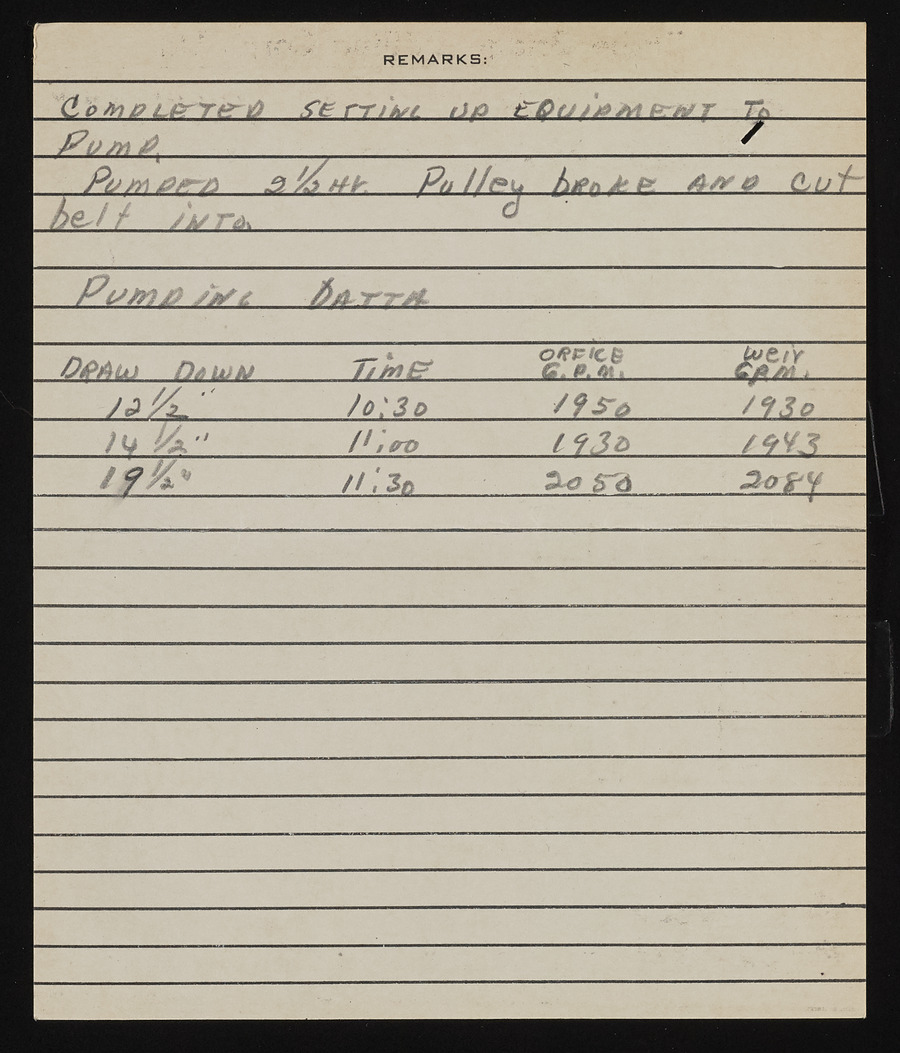 REMARKS:
COMPLETED SETTING UP EQUIPMENT TO
PUMP.
PUMPED 2 1/2 Hr. Pulley broKE AND cut
belt INTO.
PUMPING DATTA
DRAW DOWN TIME ORFICE G.P.M. Weir GPM.
12 1/2" 10:30 1950 1930
14 1/2" 11:00 1930 1943
19 1/2" 11:30 2050 2084